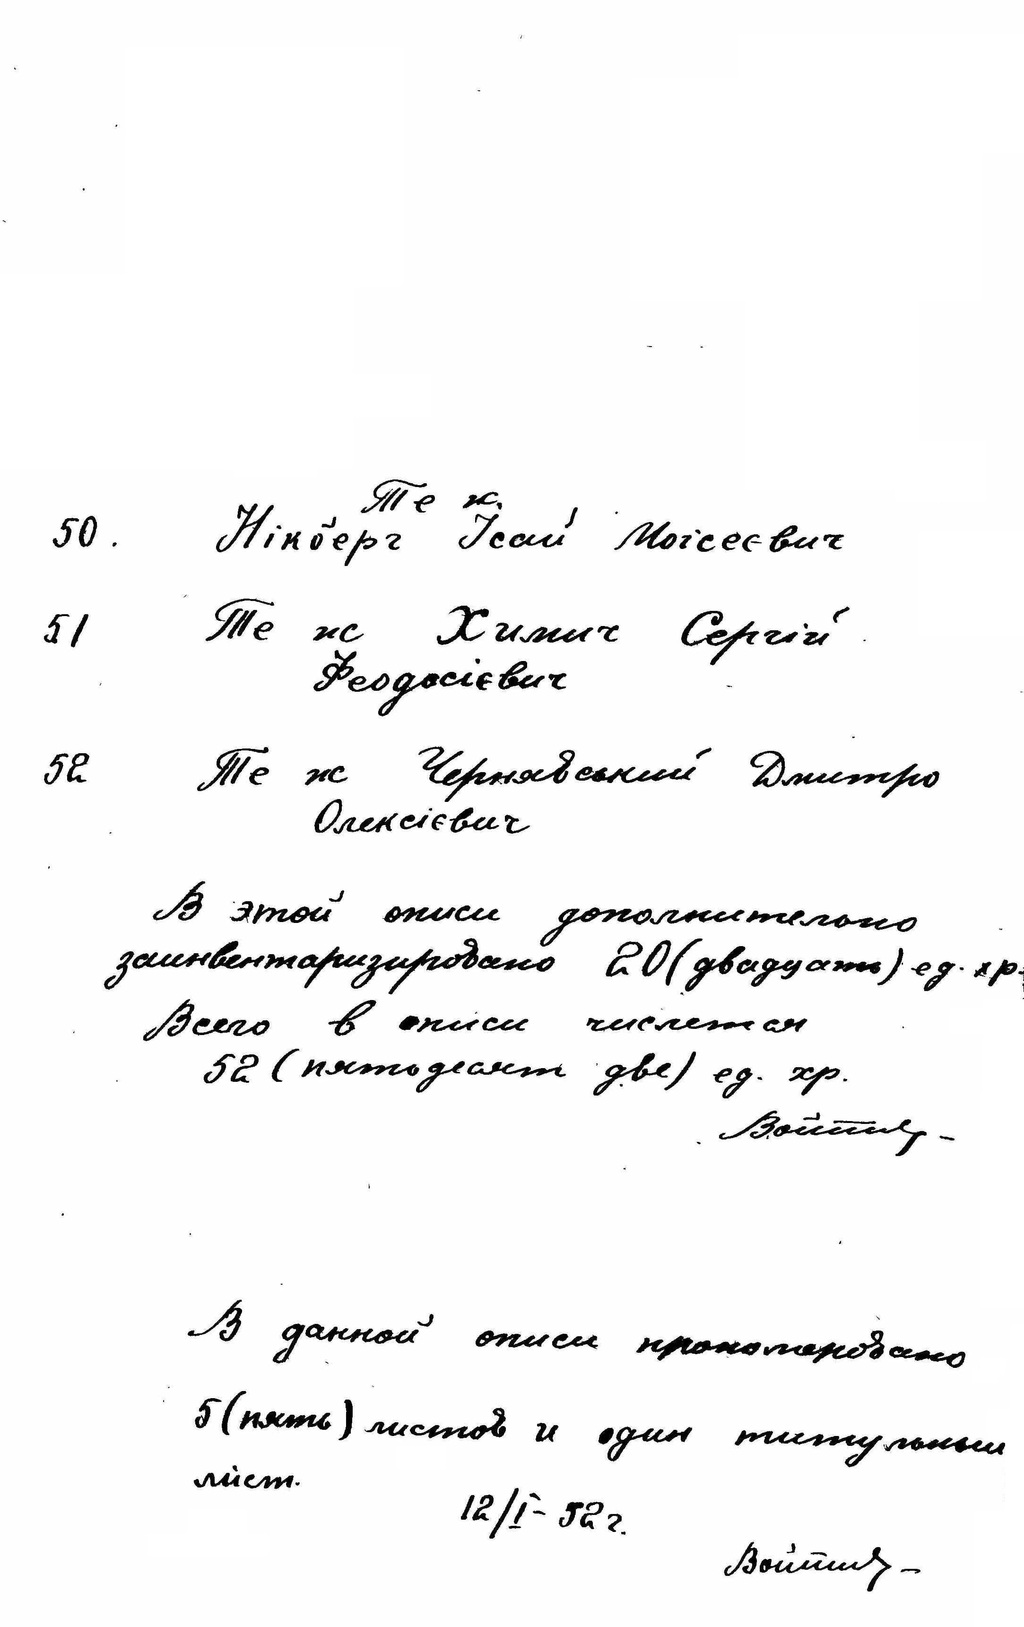 Те ж.
50. Нікберг Ісай Моісеєвич
51 Те ж Химич Сергій
Феодосієвич
52 Те ж Чернявський Дмитро
Олексієвич
В этой описи дополнительно
заинвентаризировано 20 (двадцать) ед. хр.
Всего в описи числется
52 (пятодесят две) ед. хр.
В данной описи прономеровано
5 (пять) листов и один титульный
лист.
12/I- 52 г.